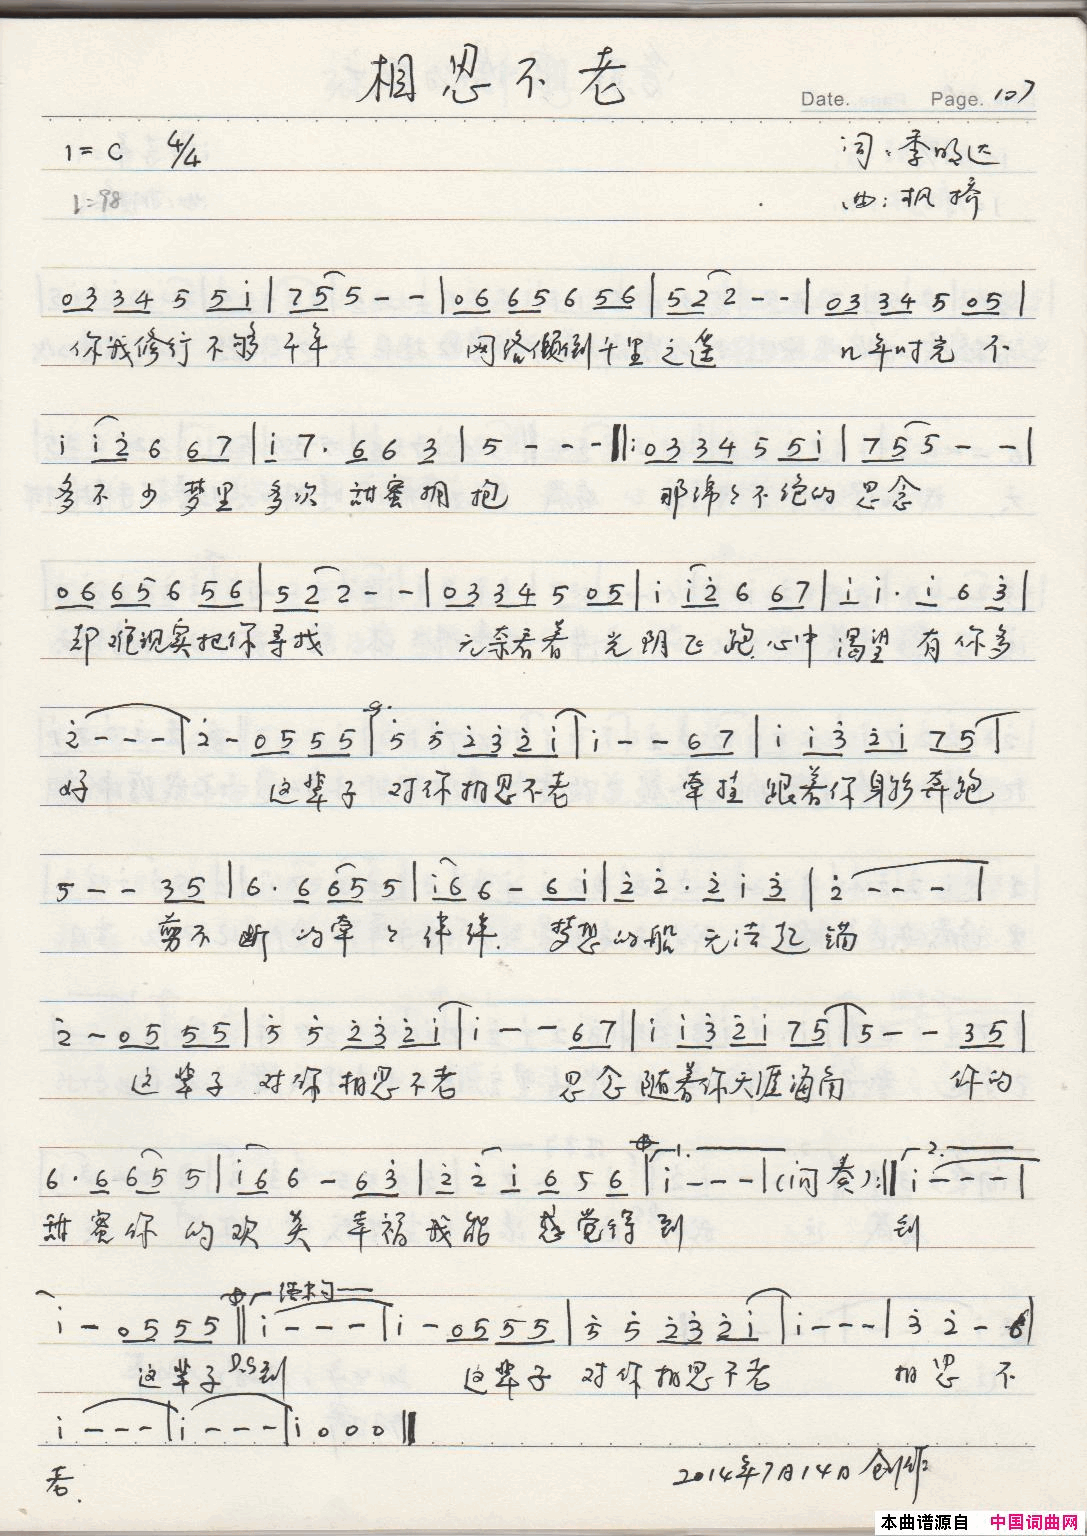 相思不老
Date. Page. 107
1=C 4/4
词:季明达
♩=98
曲:枫桥
0 3 3 4 5 5 i | 7 5 5 - - | 0 6 6 5 6 5 6 | 5 2 2 - - | 0 3 3 4 5 0 5 |
你我修行不够千年 网络倾倒千里之遥 几年时光 不
i i 2̇ 6 6 7 | i 7 · 6 6 3 | 5 - - - ‖: 0 3 3 4 5 5 i | 7 5 5 - - |
多不少 梦里 多次 甜蜜拥抱 那绵々不绝的 思念
0 6 6 5 6 5 6 | 5 2 2 - - | 0 3 3 4 5 0 5 | i i 2̇ 6 6 7 | i i · i 6 3̇ |
却难现实把你寻找 无奈看着 光阴飞跑 心中渴望 有你多
2̇ - - - | 2̇ - 0 5 5 5 | 5̇ 5̇ 2̇ 3̇ 2̇ i | i - - 6 7 | i i 3̇ 2̇ i 7 5 |
好 这辈子 对你相思不老 牵挂 跟着你身影奔跑
5 - - 3 5 | 6 · 6 6 5 5 | i 6 6 - 6 i | 2̇ 2̇ · 2̇ i 3̇ | 2̇ - - - |
剪不 断 的牵々绊绊. 梦想的船 无法起锚
2̇ - 0 5 5 5 | 5̇ 5̇ 2̇ 3̇ 2̇ i | i - - 6 7 | i i 3̇ 2̇ i 7 5 | 5 - - 3 5 |
这辈子 对你相思不老 思念 随着你天涯海角 你的
6 · 6 6 5 5 | i 6 6 - 6 3̇ | 2̇ 2̇ i 6 5 6 | 1. i - - - | (间奏) :‖ 2. i - - - |
甜蜜你 的欢笑 幸福我能 感觉得到 到
i - 0 5 5 5 ‖ 结束句 i - - - | i - 0 5 5 5 | 5̇ 5̇ 2̇ 3̇ 2̇ i | i - - - | 3̇ 2̇ - 6 |
这辈子 D.S 到 这辈子 对你相思不老 相思 不
i - - - | i - - - | i 0 0 0 ‖
老.
2014年7月14日创作
本曲谱源自 中国词曲网